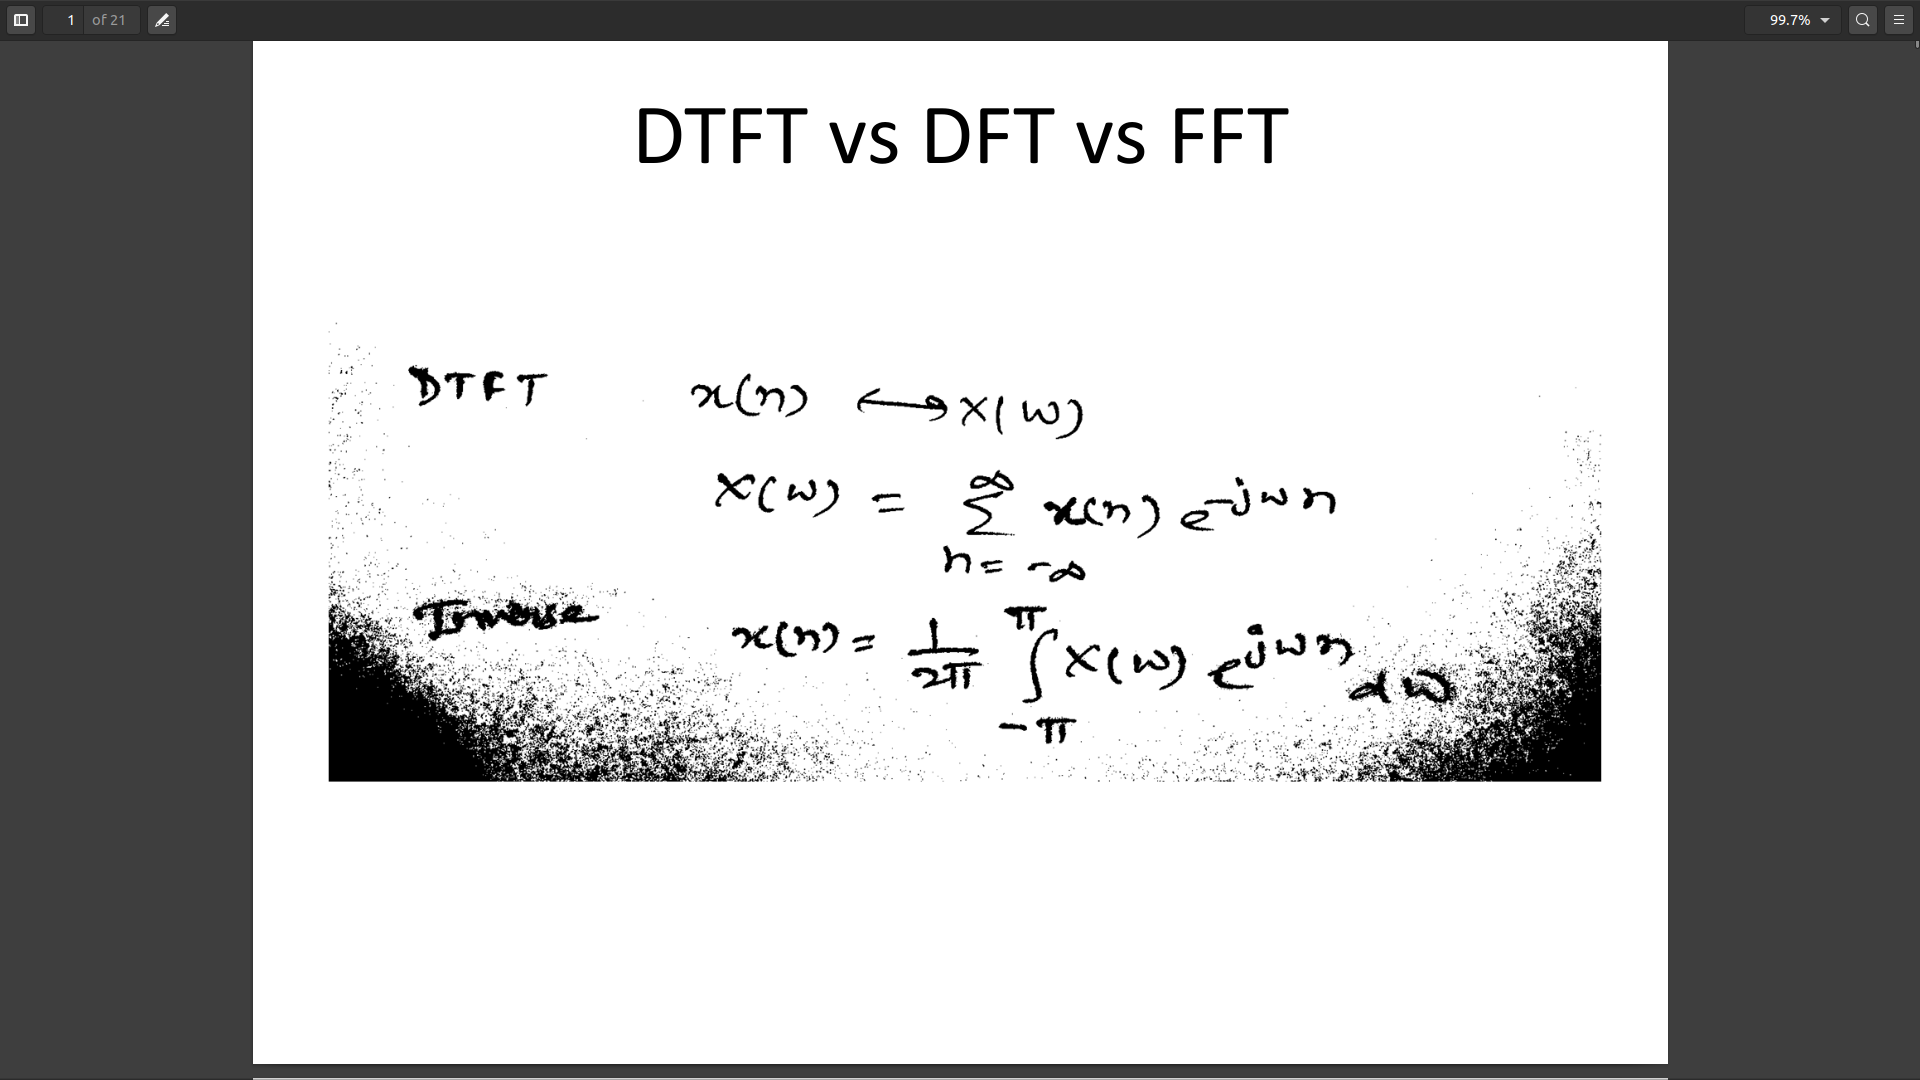 1 of 21 99.7%
DTFT vs DFT vs FFT
DTFT x(n) ⟷ X(ω)
X(ω) = ∑_{n=-∞}^{∞} x(n) e^{-jωn}
Inverse x(n) = 1/2π ∫_{-π}^{π} X(ω) e^{jωn} dω